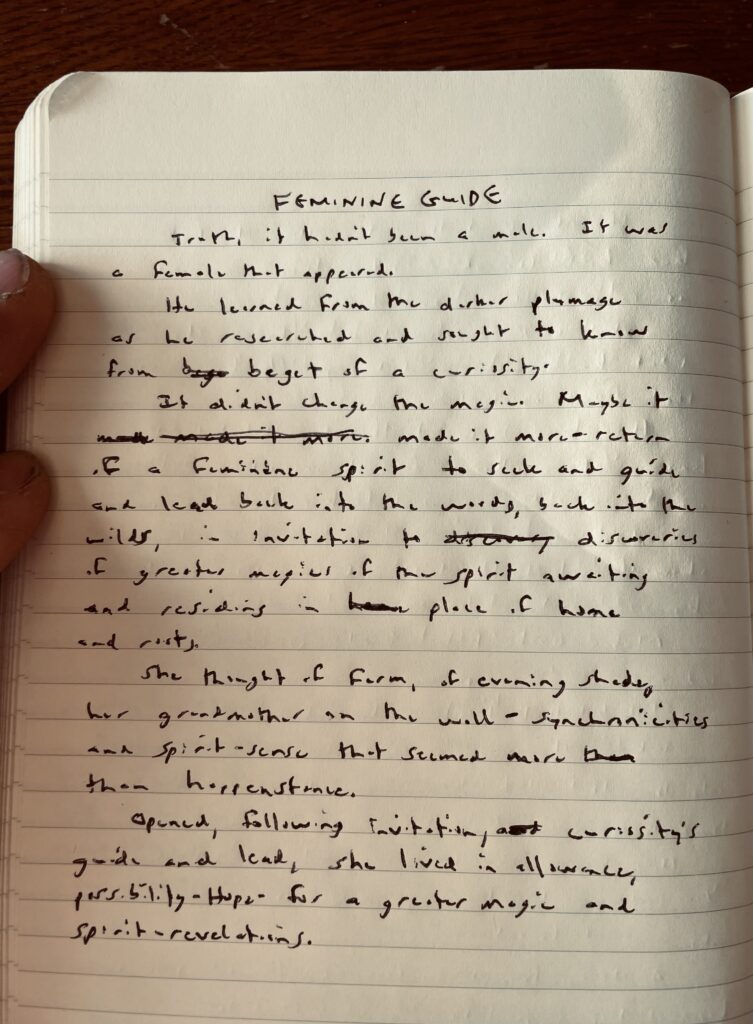 FEMININE GUIDE
Truth, it hadn't been a male. It was
a female that appeared.
He learned from the darker plumage
as he researched and sought to know
from beget of a curiosity.
It didn't change the magic. Maybe it
made it more. made it more-return
of a feminine spirit to seek and guide
and lead back into the woods, back into the
wilds, in invitation to discoveries
of greater magics of the spirit awaiting
and residing in place of home
and roots.
She thought of farm, of evening shade,
her grandmother on the wall - synchronicities
and spirit-sense that seemed more than
than happenstance.
Opened, following invitation, curiosity's
guide and lead, she lived in allowance,
possibility-Hope- for a greater magic and
spirit-revelations.